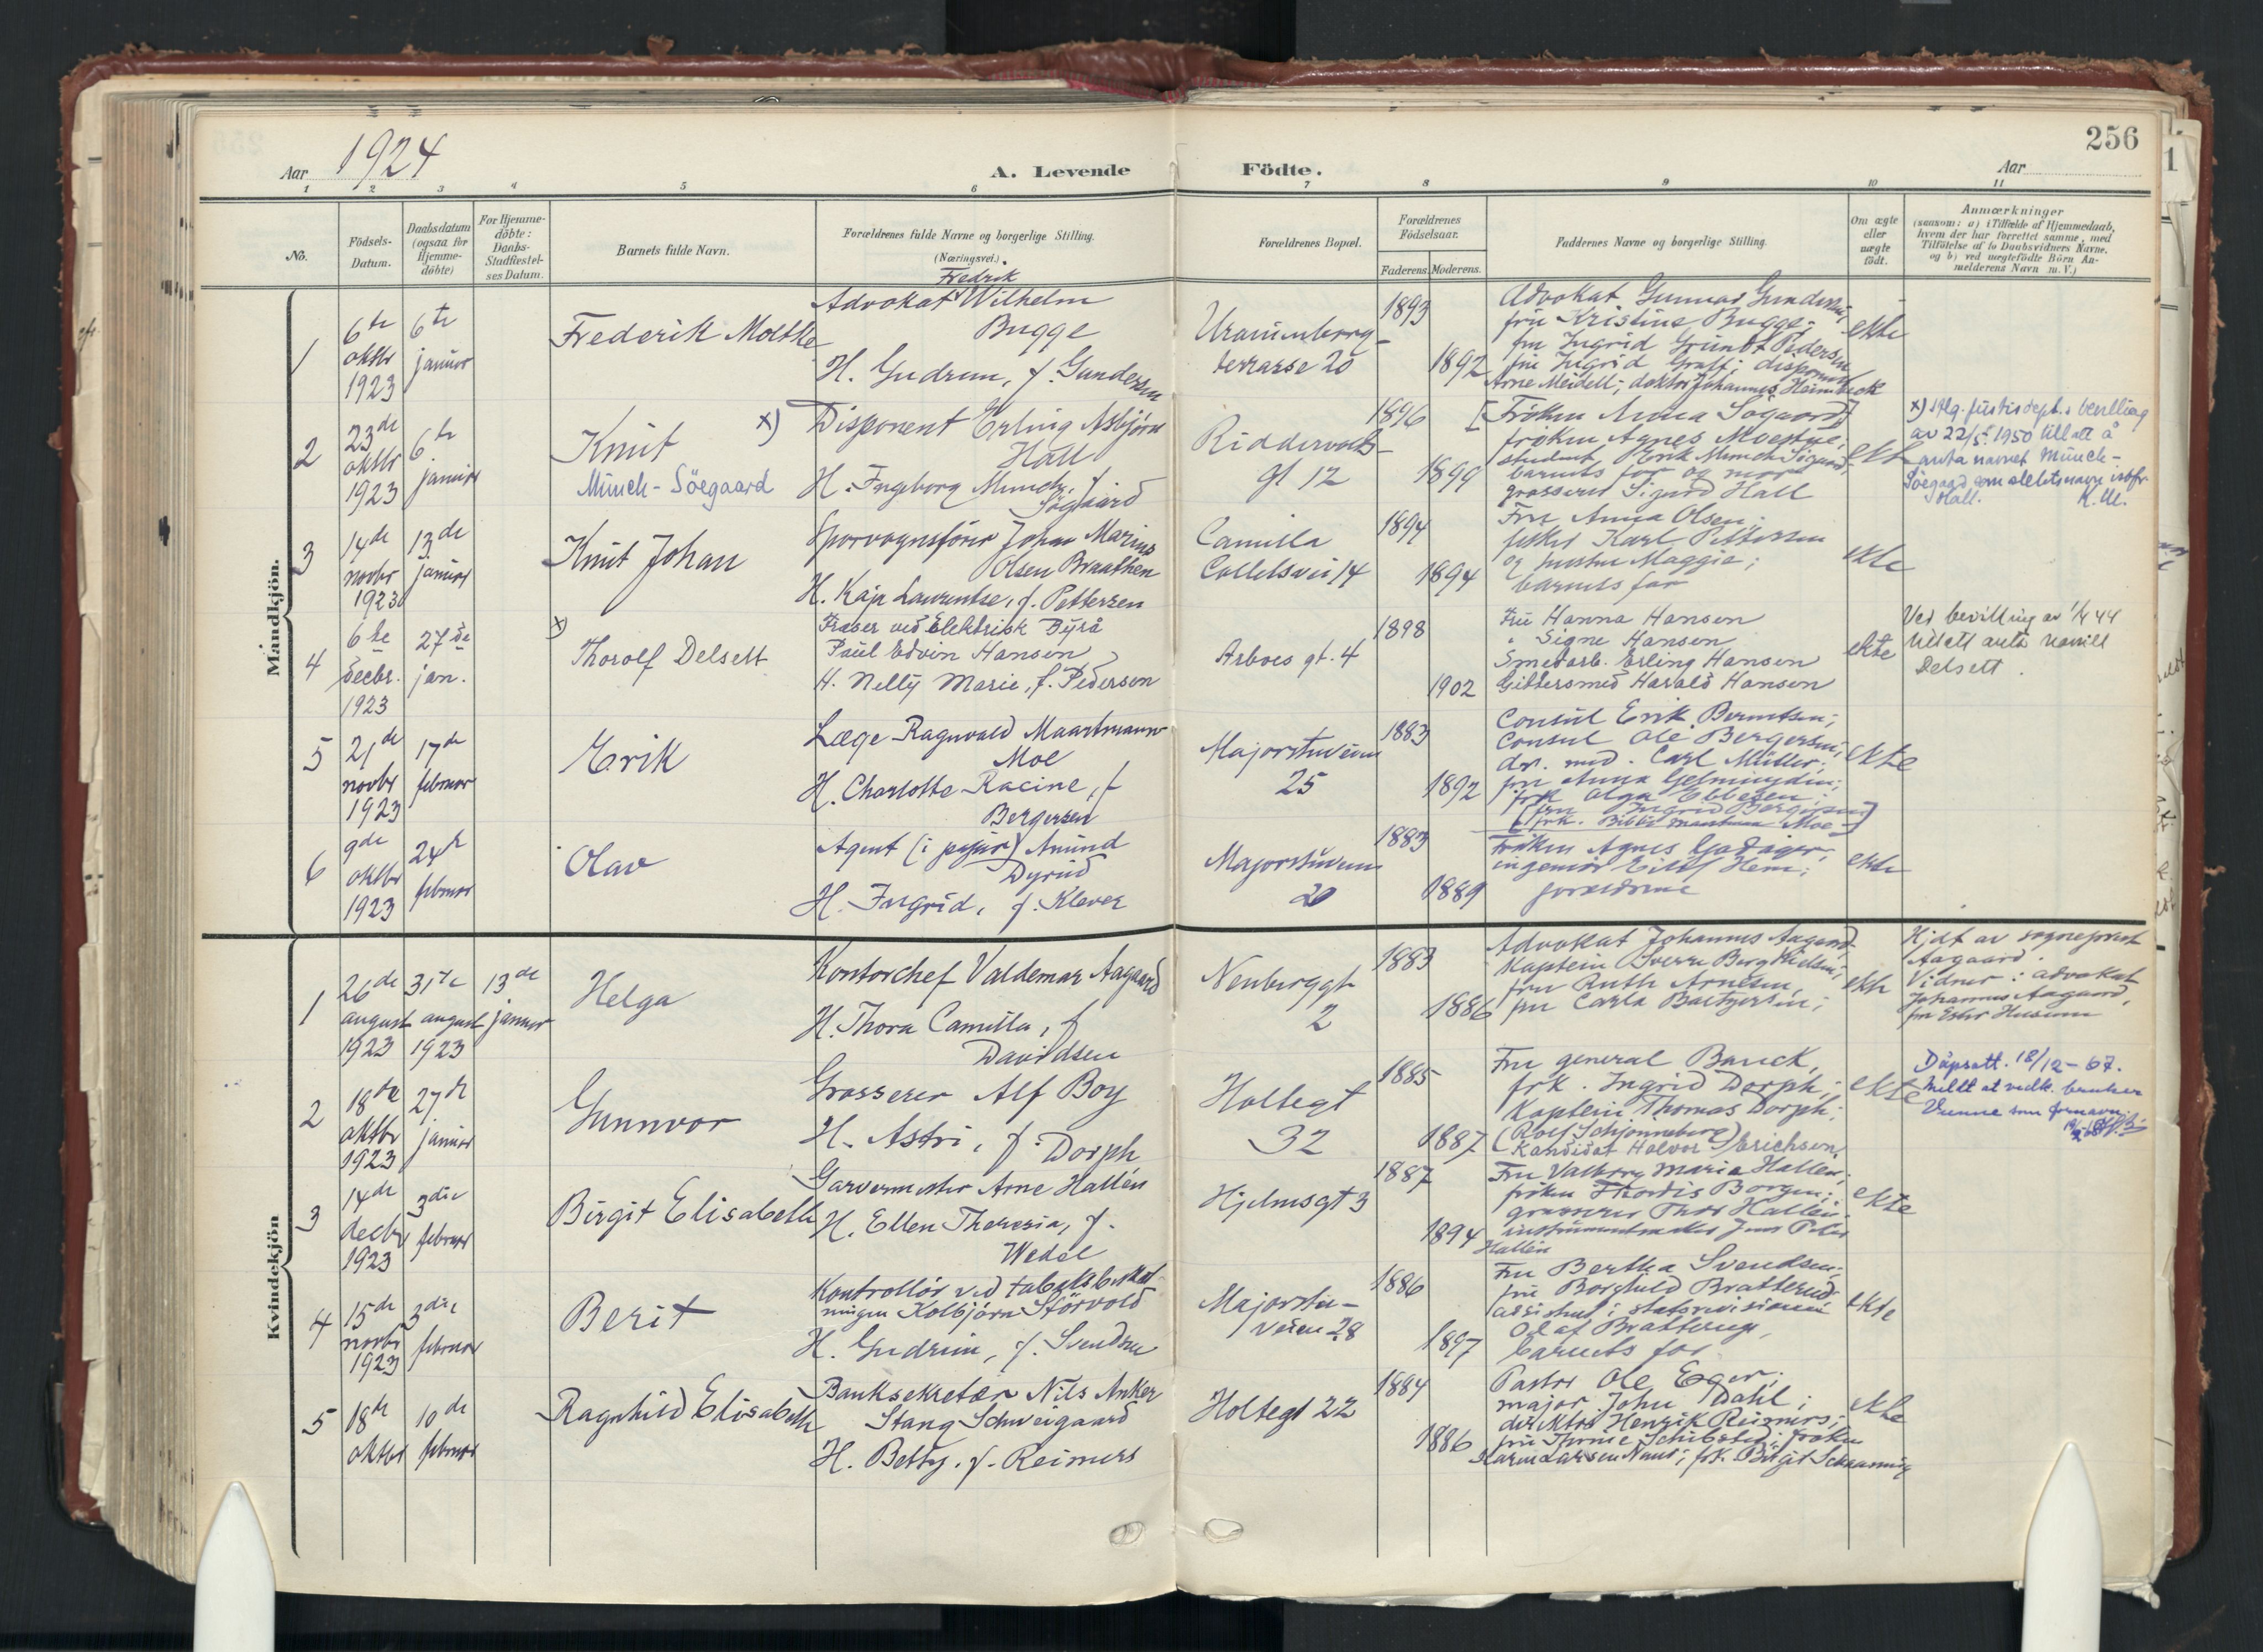 256
Aar 1924
A. Levende Födte.
Aar
1 2 3 4 5 6 7 8 9 10 11
No.
Födsels-Datum.
Daabsdatum (ogsaa for Hjemme-döbte)
For Hjemme-döbte: Daabs-Stadfæstel-ses Datum.
Barnets fulde Navn.
Forældrenes fulde Navne og borgerlige Stilling.
(Næringsvei.)
Forældrenes Bopæl.
Forældrenes Födselsaar.
Faderens. Moderens.
Faddernes Navne og borgerlige Stilling.
Om ægte eller uægte födt.
Anmærkninger
(saasom: a) i Tilfælde af Hjemmedaab,
hvem der har forrettet samme, med
Tilföielse af to Daabsvidners Navne.
og b) ved uægtefödte Börn An-
melderens Navn m.V.)
Mandkjön.
1
6te oktbr 1923
6te januar
Frederik Moltke
Fredrik
Advokat Wilhelm
Bugge
H. Gudrun, f. Gundersen
Uranienborg-
terrasse 20
1893
1892
Advokat Gunnar Gundersen;
fru Kristine Bugge;
fru Ingrid
fru Ingrid
Arne Meidell; doktor Johannes Heimbeck
ekte
2
23de oktbr 1923
6te januar
Knut
Münch-Söegaard
x) Disponent Erling Asbjörn
Hall
H. Ingeborg Munch, f.
Riddervolds-
gt 12
1896
1899
[Fröken Anna Sögaard]
fröken Agnes Moestue;
student Erik Munch Sögaard;
barnets far og mor
grosserer Sigurd Hall
ekte
x) Iflg. justisdept.s bevilling
av 22/5 1950 till att å
anta navnet Münch-
Söegaard som slektsnavn istf.
Hall.
3
14de novbr 1923
13de januar
Knut Johan
Sporvognsförer Johan Marius
Olsen Braathen
H. Kaja Laurentse, f. Pettersen
Camilla
Colletsvei 14
1894
1894
Fru Anna Olsen;
fisker Karl Pettersen
og hustru Maggie;
barnets far
ekte
4
6te decbr. 1923
27de jan.
x) Thorolf Delsett
Fræser ved Elektrisk Byrå
Paul Edvin Hansen
H. Nelly Marie, f. Pedersen
Arboes gt. 4
1898
1902
Fru Hanna Hansen
" Signe Hansen
Smedarb. Erling Hansen
Gittersmed Harald Hansen
ekte
Ved bevilling av 1/4 44
Delsett.
5
21de novbr 1923
17de februar
Erik
Læge Ragnvald Maartmann
Moe
H. Charlotte Racine, f.
Bergersen
Majorstuveien
25
1883
1892
Consul Erik Berentsen;
Consul Ole Bergersen;
dr. med. Carl Müller;
fru Anna
frk Olga Ebbesen;
[fru Ingrid Bergersen]
[frk. Bibbi Maartmann Moe]
ekte
6
9de oktbr 1923
24de februar
Olav
Agent (i papir) Amund
Dyrud
H. Ingrid, f. Klever
Majorstuveien
20
1883
1889
Fröken Agnes
ingeniör Eilif Hem;
foreldrene
ekte
Kvindekjön
1
26de august 1923
31te august 1923
13de januar
Helga
Kontorchef Valdemar Aagaard
H. Thora Camilla, f.
Davidsen
Neuberggt
2
1883
1886
Advokat Johannes Aagaard
Kaptein Sverre Borg Nielsen;
fru Ruth Arnesen,
fru Carla
ekte
Hjdt av sogneprest
Aagaard.
Vidner: advokat
Johannes Aagaard,
2
18de oktbr 1923
27de januar
Gunnvor
Grosserer Alf Boy
H. Astri, f. Dorph
Holtegt
32
1885
1887
Fru general Bauck,
frk. Ingrid Dorph;
Kaptein Thomas Dorph;
(Rolf Schjönneberg)
Kandidat Halvor Erichsen.
ekte
Dåpsatt. 18/12-67.
Meldt at vedk. bruker
som fornavn.
3
14de decbr 1923
3die februar
Birgit Elisabeth
Garvermester Arne Hallén
H. Ellen Theresia, f.
Wedel
Hjelmsgt 3
1887
1894
Fru Valborg Maria Hallén;
fröken Thordis Borgen;
grosserer Thor Hallén;
instrumentmaker Jens Peter
Hallén
ekte
4
15de novbr 1923
3die februar
Berit
Kontrollör ved tabaksbeskat-
ningen Kolbjörn Störvold
H. Gudrun, f. Svendsen
Majorstu-
veien 28
1886
1897
Fru Bertha Svendsen;
fru Borghild Bratterud
assistent i statsrevisionen
Olaf Bratterud,
barnets far
ekte
5
18de oktbr
10de februar
Ragnhild Elisabeth
Banksekretær Nils Anker
Stang Schweigaard
H. Betty, f. Reimers
Holtegt 22
1884
1886
Pastor Ole Eger;
major John Dahl;
direktör Henrik Reimers;
fru Schibsted; fröken
Karen Larsen Naur; frk. Birgit Schaanning
ekte